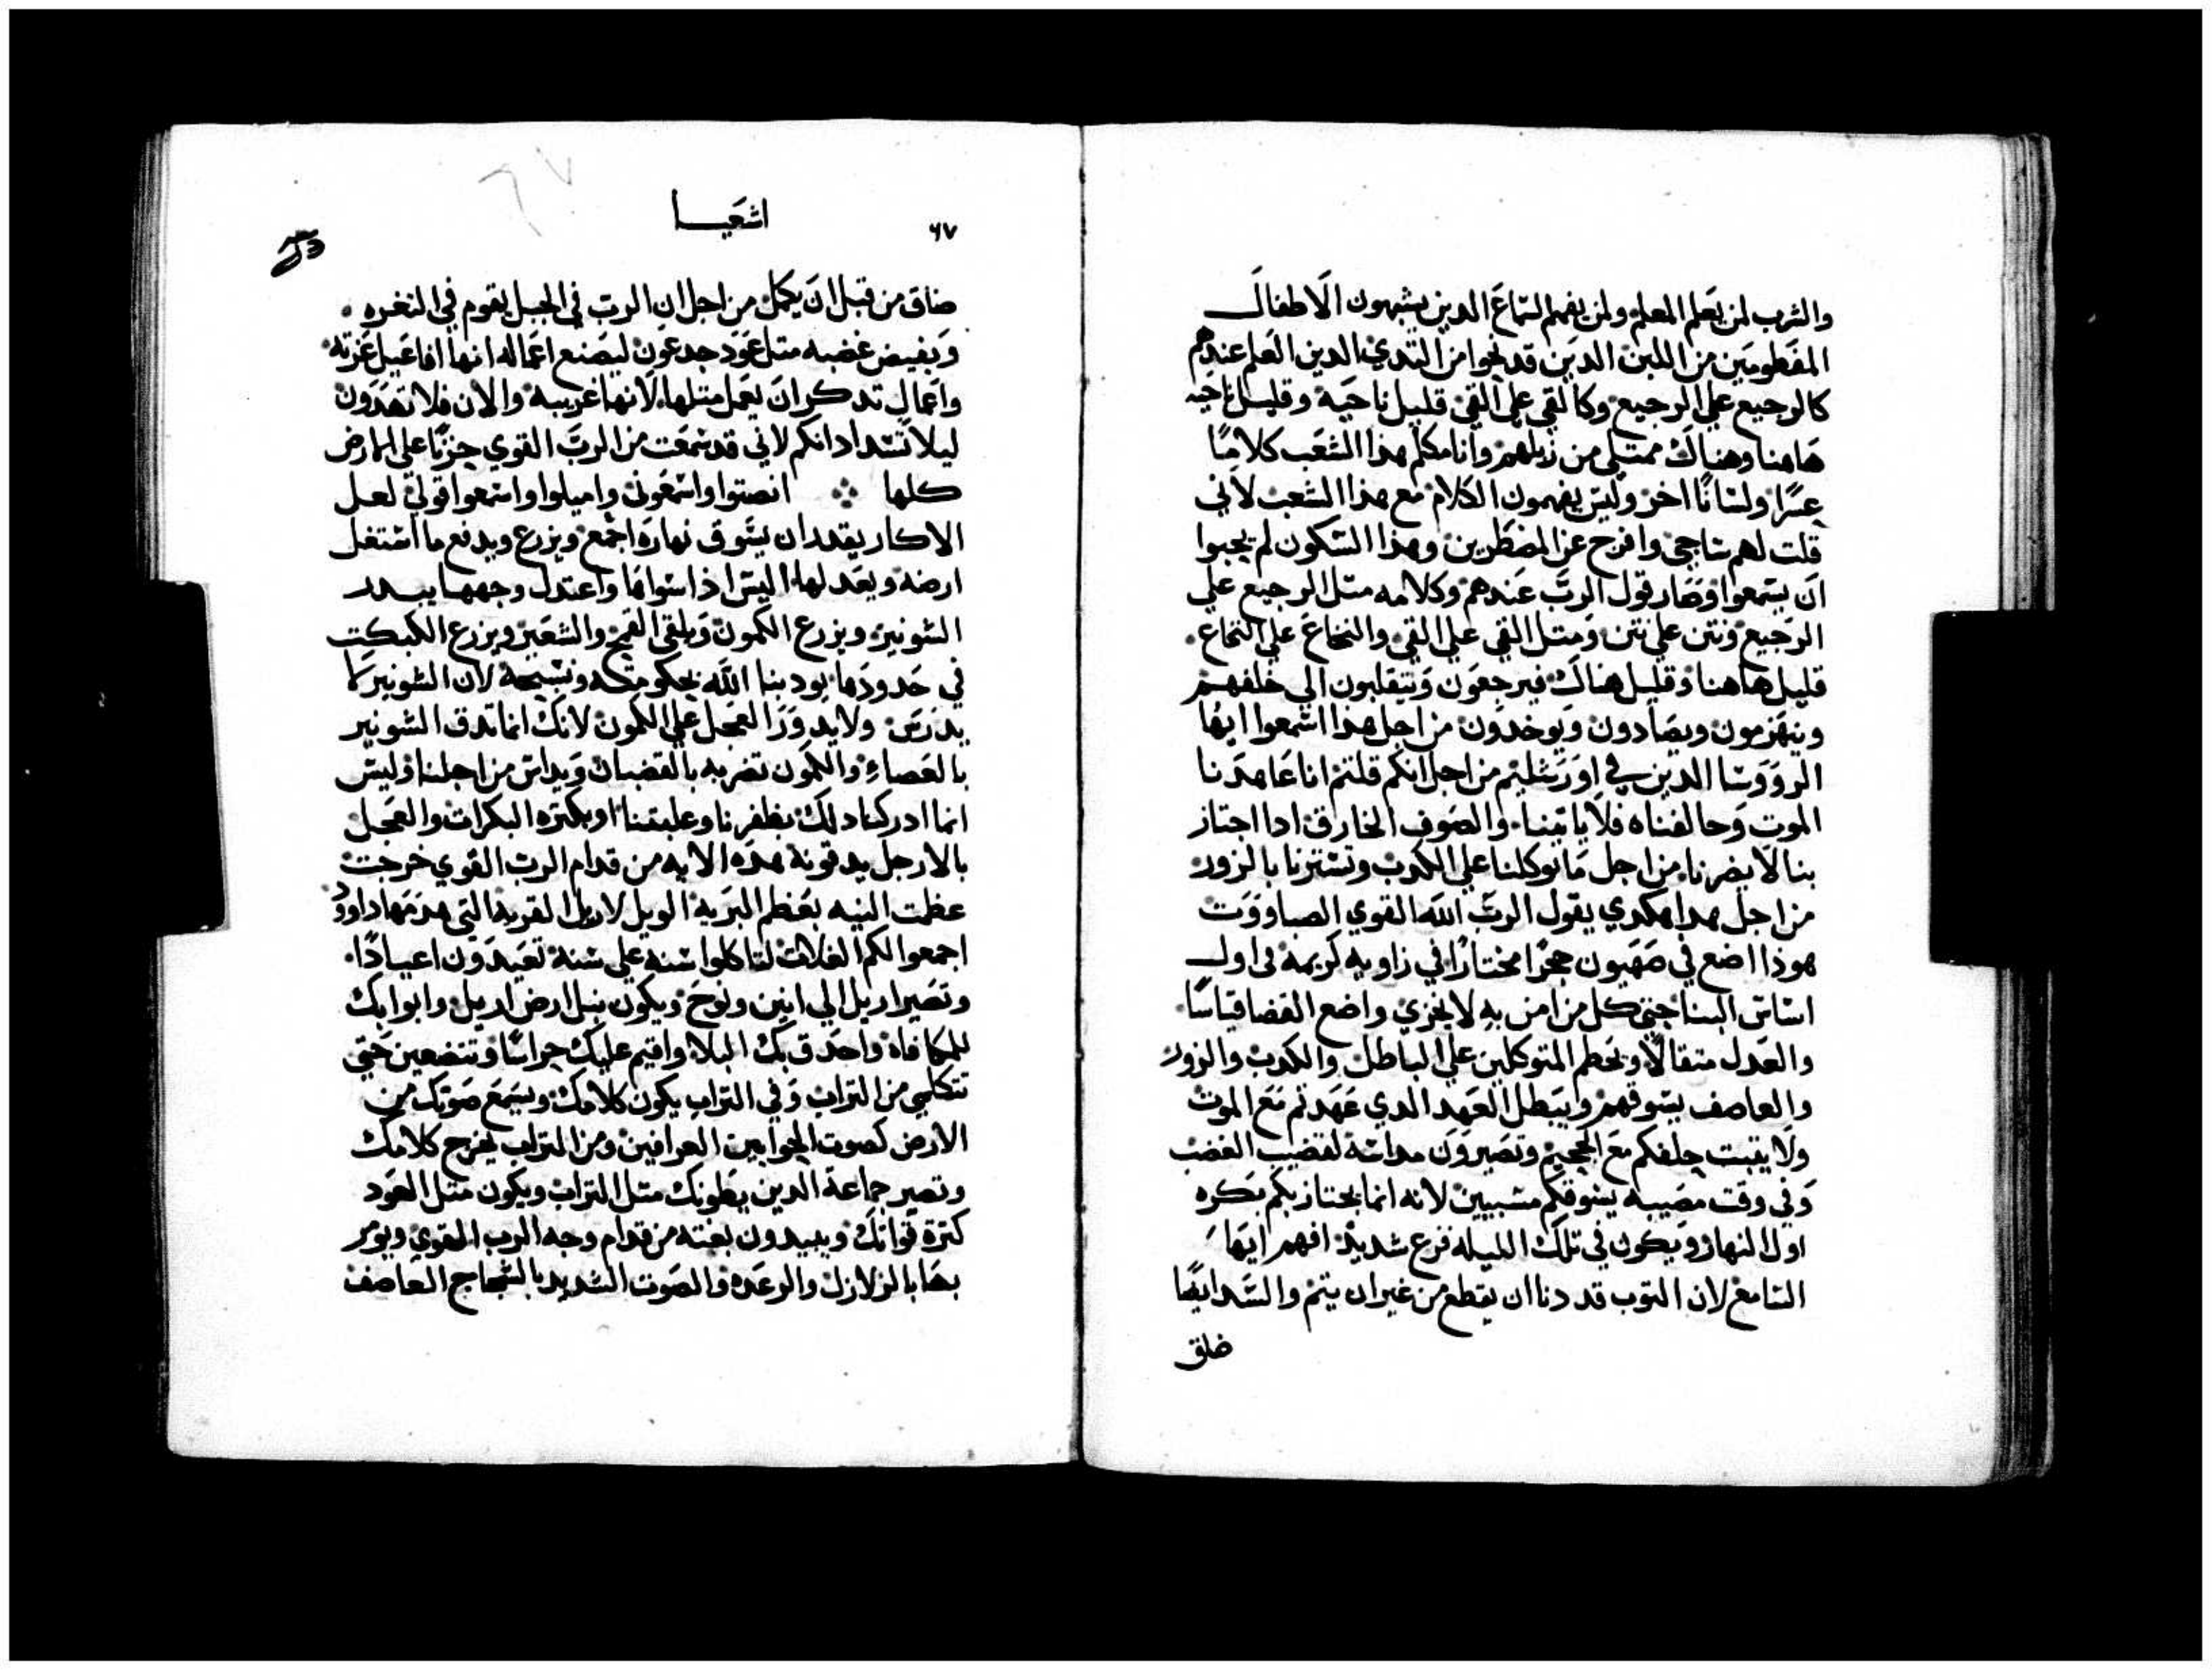 والشرب لمن يعلم المعلم ولمن يفهم السماع الدين يشبهون الاطفال
المفطومين من اللبن الدين قد نحوا من التدي الدين العلم عندهم
كالرجيع علي الرجيع وكالقي علي القي قليل ناحية وقليل ناحيه
هاهنا وهناك ممتلي من زبلهم وانا مكلم هدا الشعب كلامًا
عسرًا ولسانًا اخر وليس يفهمون الكلام مع هدا الشعب لاني
قلت لهم وافرح عن المضطرين وهدا السكون لم يحبوا
ان يسمعوا وصار قول الرب عندهم وكلامه متل الرجيع علي
الرجيع ونتن علي نتن ومتل القي علي القي والنخاع علي النخاع
قليل هاهنا وقليل هناك فيرجعون وينقلبون الي خلفهم
وينهزمون ويصادون ويوخدون من اجل هدا اسمعوا ايها
الروؤسا الدين في اورشليم من اجل انكم قلتم انا عاهدنا
الموت وحالفناه فلا ياتينا والصوف الخارق ادا اجتاز
بنا لا يضرنا من اجل ما توكلنا علي الكدب وتسترنا بالزور
من اجل هدا هكدي يقول الرب الله القوي الصباووت
هوذا اضع في صهيون حجرًا مختارًا في زاويه كريمه في اول
اساس البنا حتي كل من امن به لا يخزي واضع القضا قياسًا
والعدل متقالًا ويحطم المتوكلين علي الباطل والكدب والزور
والعاصف يسوقهم ويبطل العهد الدي عهدتم مع الموت
ولا يتبت حلفكم مع الجحيم وتصيرون مداسه لقضيب الغضب
وفي وقت مصيبه يسوقكم مسبيين لانه انما يجتاز بكم بكره
اول النهار ويكون في تلك الليله فزع شديد افهم ايها
السامع لان التوب قد دنا ان يقطع من غير ان يتم والسدا ايضًا
ضاق
٦٧
اشعيا
ضاق من قبل ان يكمل من اجل ان الرب في الجبل يقوم في التغره
ويفيض غضبه متل عود جدعون ليصنع اعماله انها افاعيل غزته
واعمال تدكر ان يعمل متلها لانها غريبة والان فلا تهدون
ليلا تشد ادانكم لاني قد سمعت من الرب القوي حزنًا علي الارض
كلها انصتوا واسمعوني واميلوا واسمعوا قولي لعل
الاكار يقدر ان يسوق نهاره اجمع ويزرع ويدفع ما استغل
ارضه ويعد لها اليس اذا سواها واعتدل وجهها يبدر
الشونيز ويزرع الكمون ويلقي القمح والشعير ويزرع
في حدودها بود بنا الله بحكومته ونسبحه لان الشونيز كما
يدرس ولا يدور العجل علي الكمون لانك انما تدق الشونيز
بالعصاء والكمون تضربه بالقضبان ويداس من اجلنا وليس
انما ادركنا دلك بظفرنا وعلبتنا او بكتره البكرات والعجل
بالارجل يدقونه بهده الايه من قدام الرب القوي خرجت
عظمت النيه بعظم البريه الويل لاريل القريه التي هدمها داوود
اجمعوا لكم الغلات لتاكلوا سنه علي سنه تعيدون اعيادًا
وتصير اريل الي انين ونوح ويكون نبل ارض اريل وابوابك
للمكافاه واحدق بك البلا واقيم عليك حراسًا وتتضعين حتي
تتكلمي من التراب وفي التراب يكون كلامك ويسمع صوتك من
الارض كصوت الحوايين العرافين ومن التراب يخرج كلامك
وتصير جماعة الدين يطونك متل التراب ويكون متل العود
كترة قواتك ويبيدون بغته من قدام وجه الرب القوي ويومر
بها بالزلازل والرعده والصوت الشديد بالعجاج العاصف